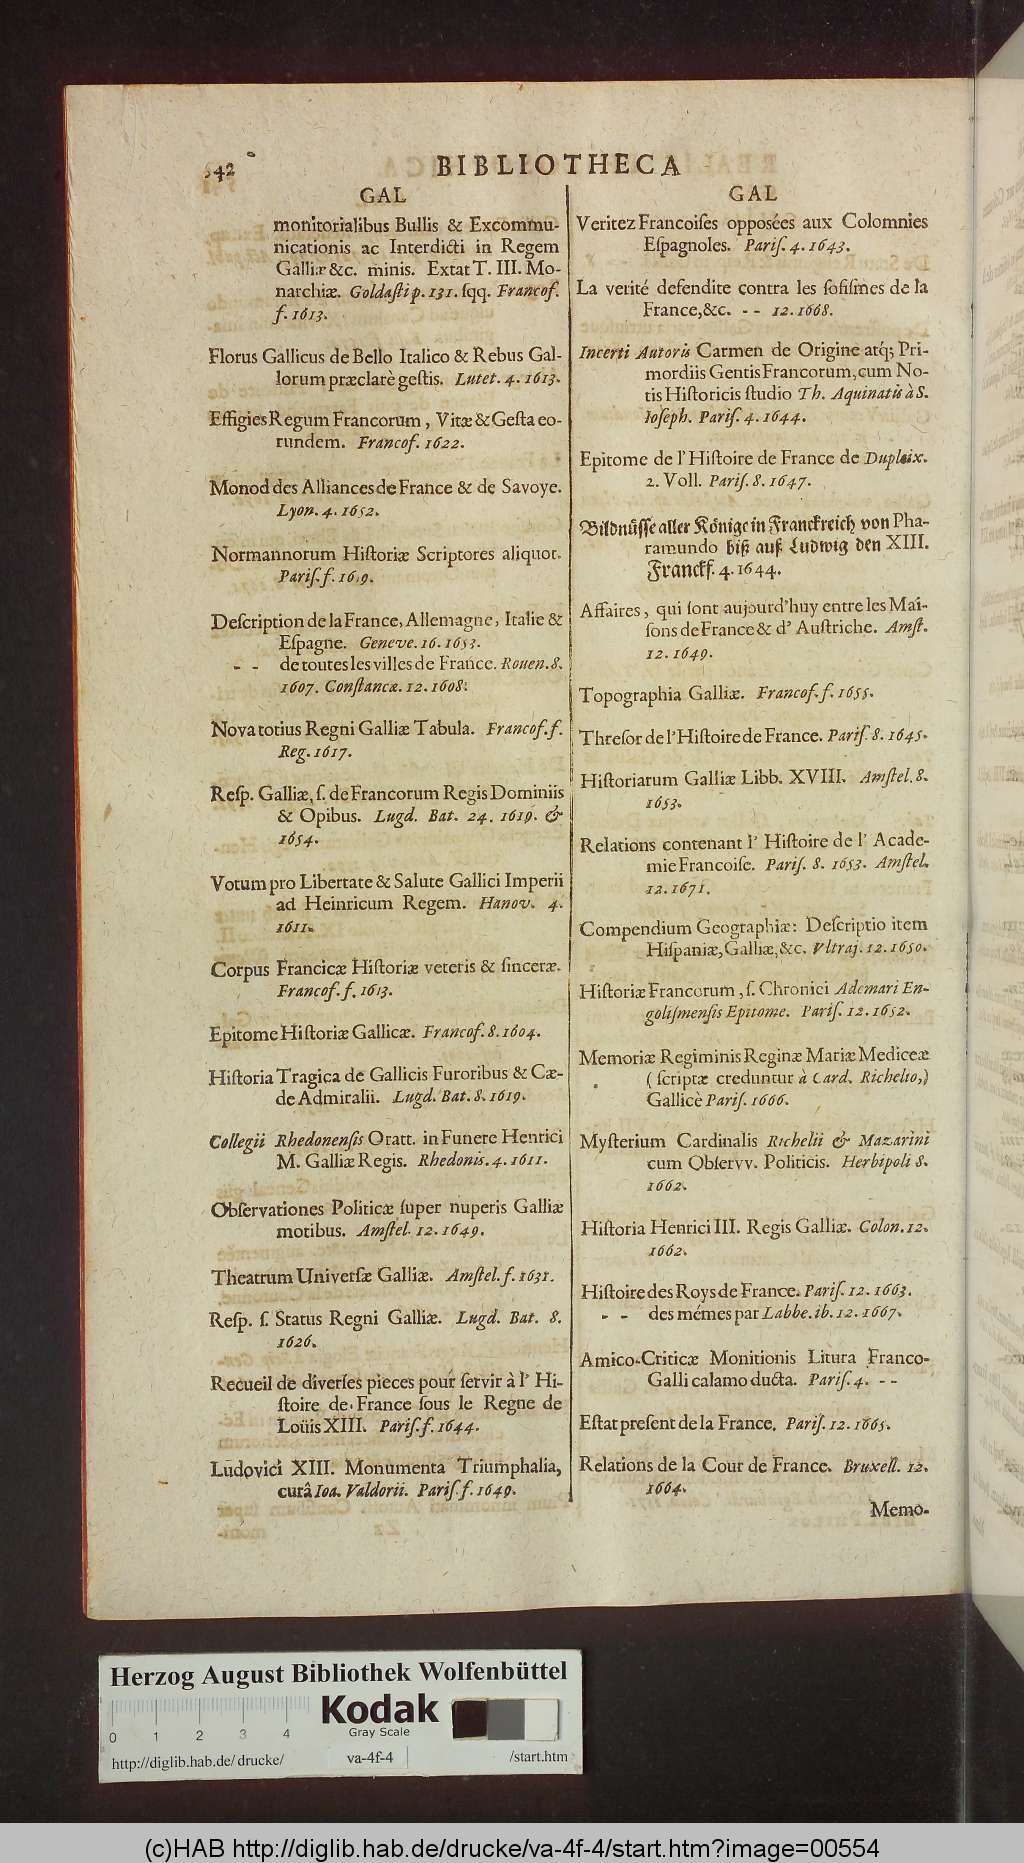 542
BIBLIOTHECA
GAL
monitorialibus Bullis & Excommu-
nicationis ac Interdicti in Regem
Galliæ &c. minis. Extat T. III. Mo-
narchiæ. Goldasti p. 131. sqq. Francof.
f. 1613.
Florus Gallicus de Bello Italico & Rebus Gal-
lorum præclarè gestis. Lutet. 4. 1613.
Effigies Regum Francorum, Vitæ & Gesta eo-
rundem. Francof. 1622.
Monod des Alliances de France & de Savoye.
Lyon. 4. 1652.
Normannorum Historiæ Scriptores aliquot.
Paris. f. 1619.
Description de la France, Allemagne, Italie &
Espagne. Geneve. 16. 1653.
- - de toutes les villes de France. Rouen. 8.
1607. Constancæ. 12. 1608.
Nova totius Regni Galliæ Tabula. Francof. f.
Reg. 1617.
Resp. Galliæ, s. de Francorum Regis Dominiis
& Opibus. Lugd. Bat. 24. 1619. &
1654.
Votum pro Libertate & Salute Gallici Imperii
ad Heinricum Regem. Hanov. 4.
1611.
Corpus Francicæ Historiæ veteris & sinceræ.
Francof. f. 1613.
Epitome Historiæ Gallicæ. Francof. 8. 1604.
Historia Tragica de Gallicis Furoribus & Cæ-
de Admiralii. Lugd. Bat. 8. 1619.
Collegii Rhedonensis Oratt. in Funere Henrici
M. Galliæ Regis. Rhedonis. 4. 1611.
Observationes Politicæ super nuperis Galliæ
motibus. Amstel. 12. 1649.
Theatrum Universæ Galliæ. Amstel. f. 1631.
Resp. s. Status Regni Galliæ. Lugd. Bat. 8.
1626.
Recueil de diverses pieces pour servir à l' Hi-
stoire de France sous le Regne de
Loüis XIII. Paris. f. 1644.
Ludovici XIII. Monumenta Triumphalia,
curâ Ioa. Valdorii. Paris. f. 1649.
GAL
Veritez Francoises opposées aux Colomnies
Espagnoles. Paris. 4. 1643.
La verité defendite contra les sofismes de la
France, &c. - - 12. 1668.
Incerti Autoris Carmen de Origine atq; Pri-
mordiis Gentis Francorum, cum No-
tis Historicis studio Th. Aquinatis à S.
Ioseph. Paris. 4. 1644.
Epitome de l' Histoire de France de Dupleix.
2. Voll. Paris. 8. 1647.
Bildnüsse aller Könige in Franckreich von Pha-
ramundo biß auß Ludwig den XIII.
Franckf. 4. 1644.
Affaires, qui sont aujourd'huy entre les Mai-
sons de France & d' Austriche. Amst.
12. 1649.
Topographia Galliæ. Francof. f. 1655.
Thresor de l'Histoire de France. Paris. 8. 1645.
Historiarum Galliæ Libb. XVIII. Amstel. 8.
1653.
Relations contenant l' Histoire de l' Acade-
mie Francoise. Paris. 8. 1653. Amstel.
12. 1671.
Compendium Geographiæ: Descriptio item
Hispaniæ, Galliæ, &c. Vltraj. 12. 1650.
Historiæ Francorum, s. Chronici Ademari En-
golismensis Epitome. Paris. 12. 1652.
Memoriæ Regiminis Reginæ Mariæ Mediceæ
(scriptæ creduntur à Card. Richelio,)
Gallicè Paris. 1666.
Mysterium Cardinalis Richelii & Mazarini
cum Observv. Politicis. Herbipoli 8.
1662.
Historia Henrici III. Regis Galliæ. Colon. 12.
1662.
Histoire des Roys de France. Paris. 12. 1663.
- - des mémes par Labbe. ib. 12. 1667.
Amico-Criticæ Monitionis Litura Franco-
Galli calamo ducta. Paris. 4. - -
Estat present de la France. Paris. 12. 1665.
Relations de la Cour de France. Bruxell. 12.
1664.
Memo-
Herzog August Bibliothek Wolfenbüttel
Kodak
Gray Scale
0 1 2 3 4
http://diglib.hab.de/drucke/ va-4f-4 /start.htm
(c)HAB http://diglib.hab.de/drucke/va-4f-4/start.htm?image=00554